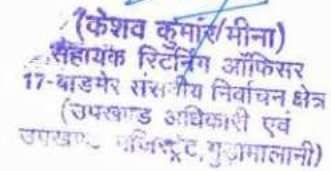 (केशव कुमार मीना)
सहायक रिटर्निंग ऑफिसर
17-बाडमेर संसदीय निर्वाचन क्षेत्र
(उपखण्ड अधिकारी एवं
उपखण्ड मजिस्ट्रेट,गुड़ामालानी)